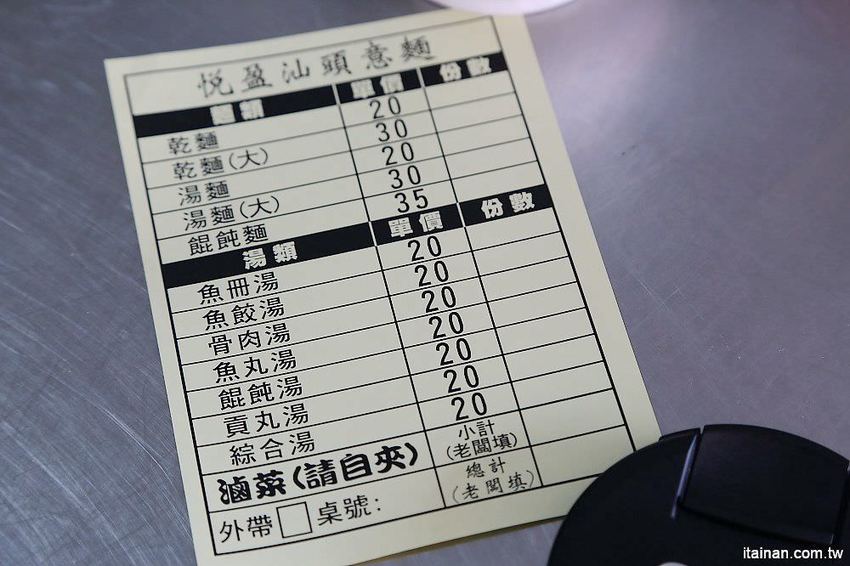 悅盈汕頭意麵
麵類 單價 份數
乾麵 20
乾麵(大) 30
湯麵 20
湯麵(大) 30
餛飩麵 35
湯類 單價 份數
魚冊湯 20
魚餃湯 20
骨肉湯 20
魚丸湯 20
餛飩湯 20
貢丸湯 20
綜合湯 20
滷菜(請自夾) 小計
(老闆填)
外帶 桌號: 總計
(老闆填)
itainan.com.tw